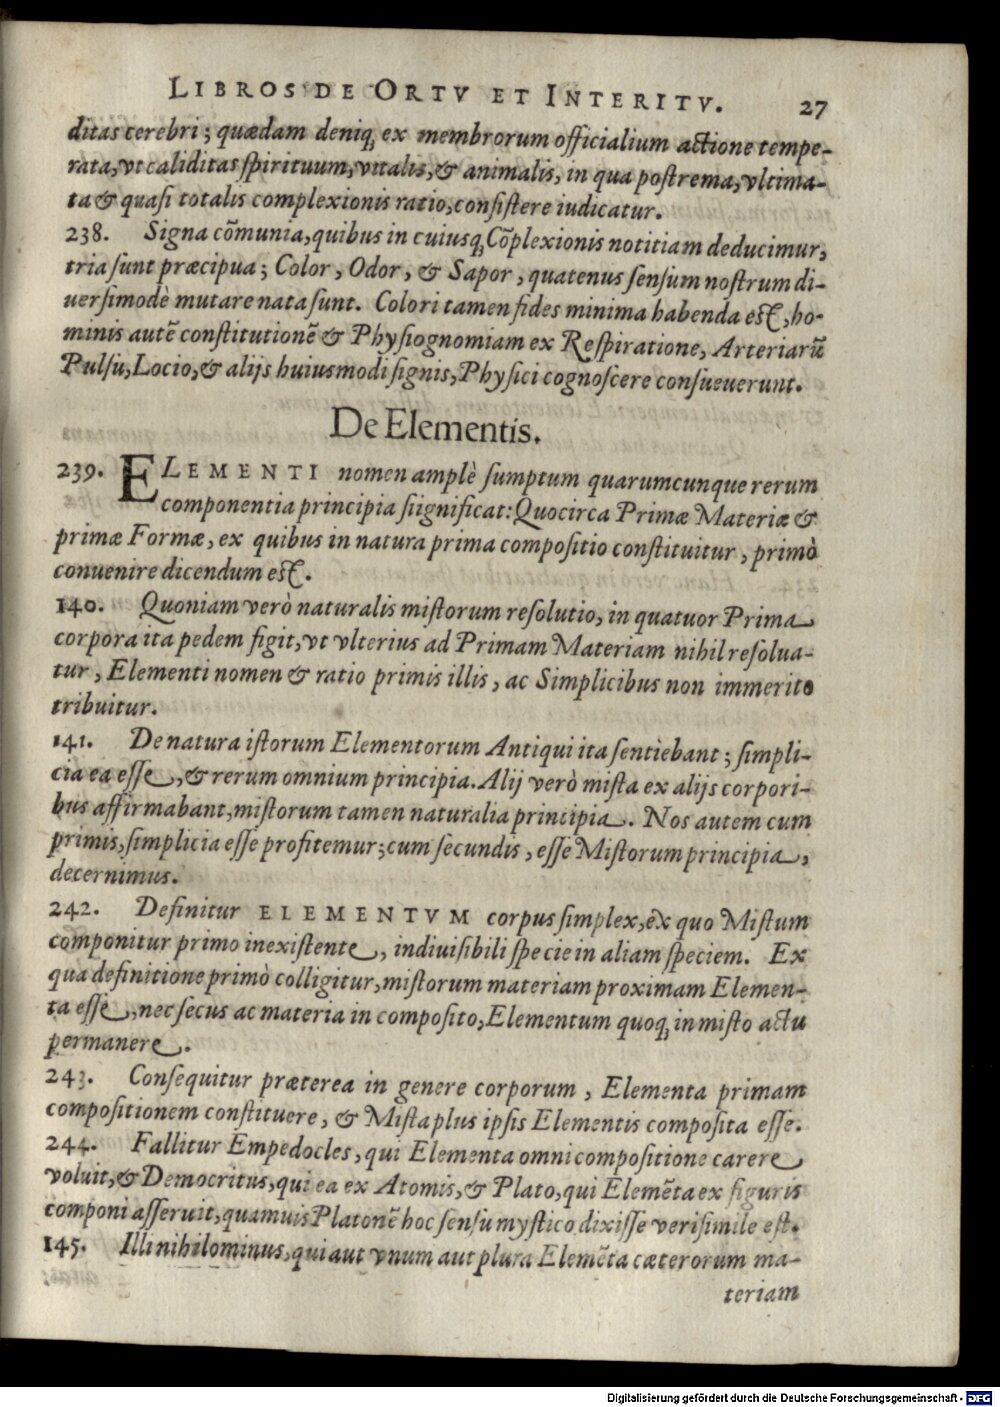 LIBROS DE ORTV ET INTERITV. 27
ditas cerebri; quædam deniq; ex membrorum officialium actione tempe-
rata, vt caliditas spirituum, vitalis, & animalis, in qua postrema, vltima-
ta & quasi totalis complexionis ratio, consistere iudicatur.
238. Signa cõmunia, quibus in cuiusq; Cõplexionis notitiam deducimur,
tria sunt præcipua; Color, Odor, & Sapor, quatenus sensum nostrum di-
uersimodè mutare nata sunt. Colori tamen fides minima habenda est, ho-
minis autẽ constitutionẽ & Physiognomiam ex Respiratione, Arteriarũ
Pulsu, Locio, & alijs huiusmodi signis, Physici cognoscere consueuerunt.
De Elementis.
239. ELEMENTI nomen amplè sumptum quarumcunque rerum
componentia principia siignificat: Quocirca Primæ Materiæ &
primæ Formæ, ex quibus in natura prima compositio constituitur, primò
conuenire dicendum est.
140. Quoniam verò naturalis mistorum resolutio, in quatuor Prima
corpora ita pedem figit, vt vlterius ad Primam Materiam nihil resolua-
tur, Elementi nomen & ratio primis illis, ac Simplicibus non immerito
tribuitur.
141. De natura istorum Elementorum Antiqui ita sentiebant; simpli-
cia ea esse, & rerum omnium principia. Alij verò mista ex alijs corpori-
bus affirmabant, mistorum tamen naturalia principia. Nos autem cum
primis, simplicia esse profitemur; cum secundis, esse Mistorum principia,
decernimus.
242. Definitur ELEMENTVM corpus simplex, ex quo Mistum
componitur primo inexistente, indiuisibili specie in aliam speciem. Ex
qua definitione primò colligitur, mistorum materiam proximam Elemen-
ta esse, nec secus ac materia in composito, Elementum quoq; in misto actu
permanere.
243. Consequitur præterea in genere corporum, Elementa primam
compositionem constituere, & Mista plus ipsis Elementis composita esse.
244. Fallitur Empedocles, qui Elementa omni compositione carere
voluit, & Democritus, qui ea ex Atomis, & Plato, qui Elemẽta ex figuris
componi asseruit, quamuis Platonẽ hoc sensu mystico dixisse verisimile est.
145. Illi nihilominus, qui aut vnum aut plura Elemẽta cæterorum ma-
teriam
Digitalisierung gefördert durch die Deutsche Forschungsgemeinschaft - DFG